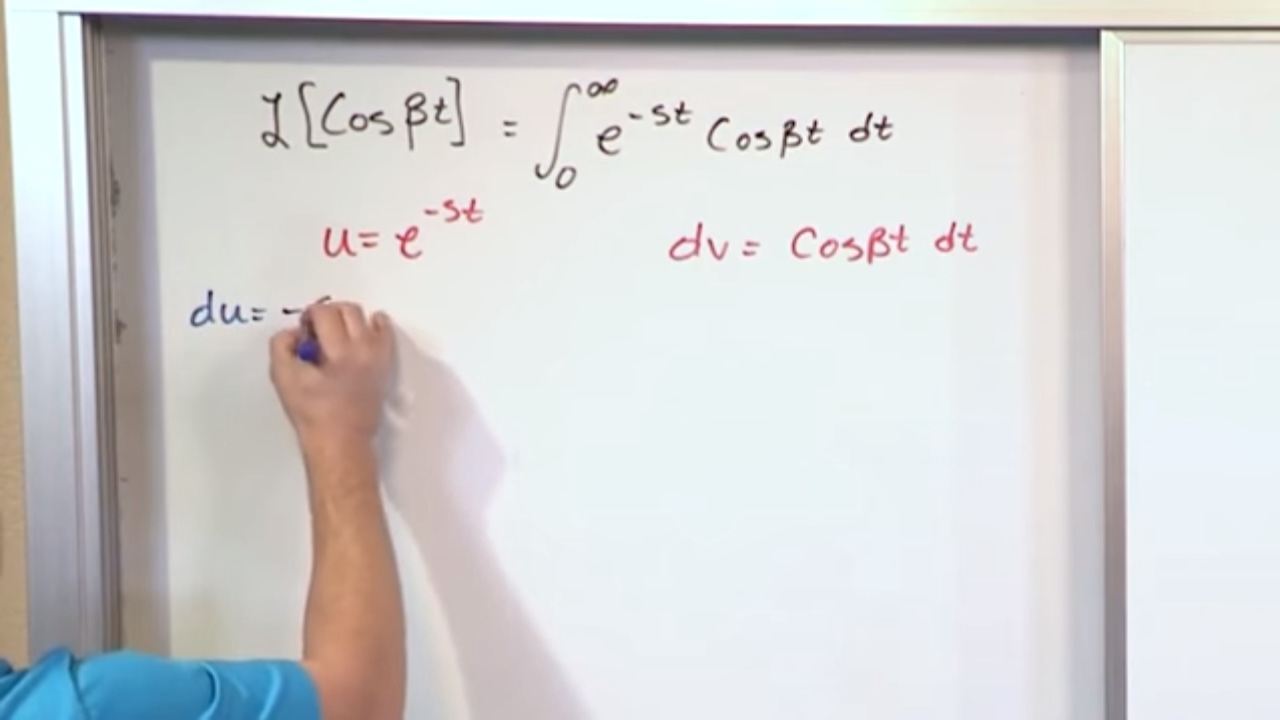 ℒ[Cos βt] = ∫₀^∞ e^{-st} Cos βt dt
u = e^{-st} dv = Cos βt dt
du = -